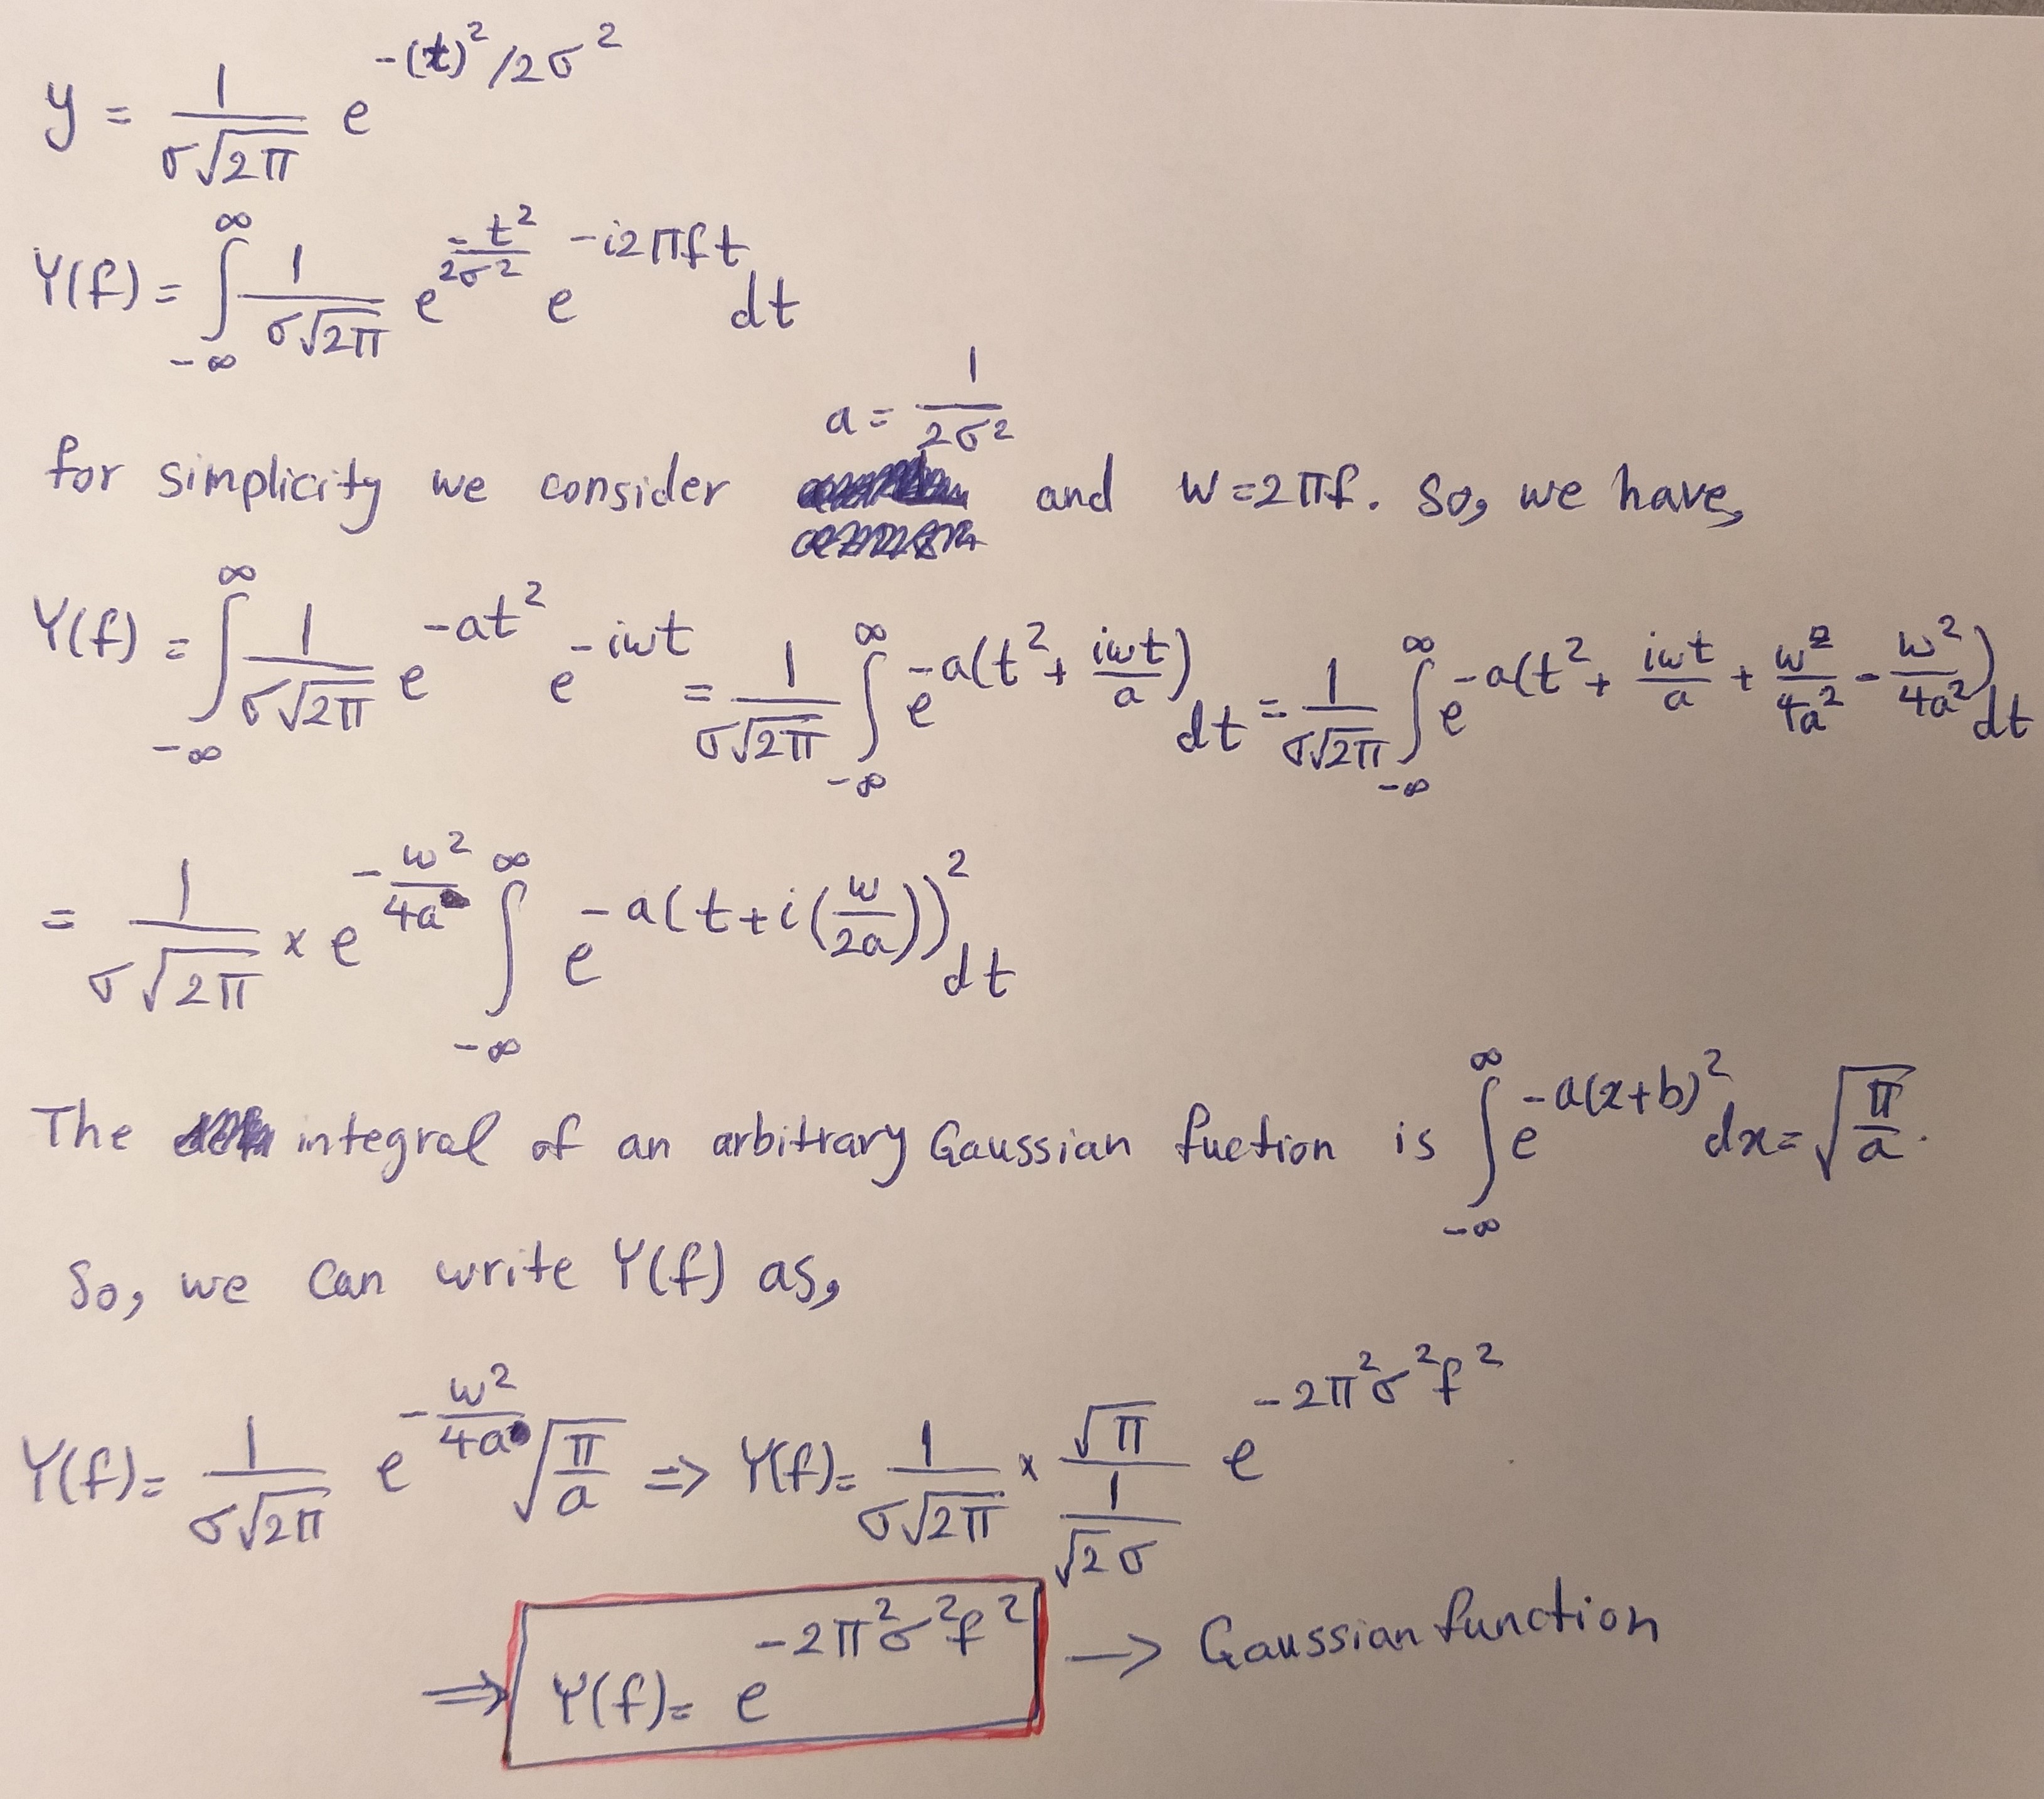 y = \frac{1}{σ\sqrt{2π}} e^{-(t)^2/2σ^2}
Y(f) = \int_{-∞}^{∞} \frac{1}{σ\sqrt{2π}} e^{-\frac{t^2}{2σ^2}} e^{-i2πft} dt
for simplicity we consider a = \frac{1}{2σ^2} and w = 2πf. So, we have,
Y(f) = \int_{-∞}^{∞} \frac{1}{σ\sqrt{2π}} e^{-at^2} e^{-iwt} = \frac{1}{σ\sqrt{2π}} \int_{-∞}^{∞} e^{-a(t^2 + \frac{iwt}{a})} dt = \frac{1}{σ\sqrt{2π}} \int_{-∞}^{∞} e^{-a(t^2 + \frac{iwt}{a} + \frac{w^2}{4a^2} - \frac{w^2}{4a^2})} dt
= \frac{1}{σ\sqrt{2π}} × e^{-\frac{w^2}{4a}} \int_{-∞}^{∞} e^{-a(t + i(\frac{w}{2a}))^2} dt
The integral of an arbitrary Gaussian fuction is \int_{-∞}^{∞} e^{-a(x+b)^2} dx = \sqrt{\frac{π}{a}}.
So, we can write Y(f) as,
Y(f) = \frac{1}{σ\sqrt{2π}} e^{-\frac{w^2}{4a}} \sqrt{\frac{π}{a}} ⇒ Y(f) = \frac{1}{σ\sqrt{2π}} × \frac{\sqrt{π}}{\frac{1}{\sqrt{2}σ}} e^{-2π^2σ^2f^2}
⇒ Y(f) = e^{-2π^2σ^2f^2} → Gaussian function